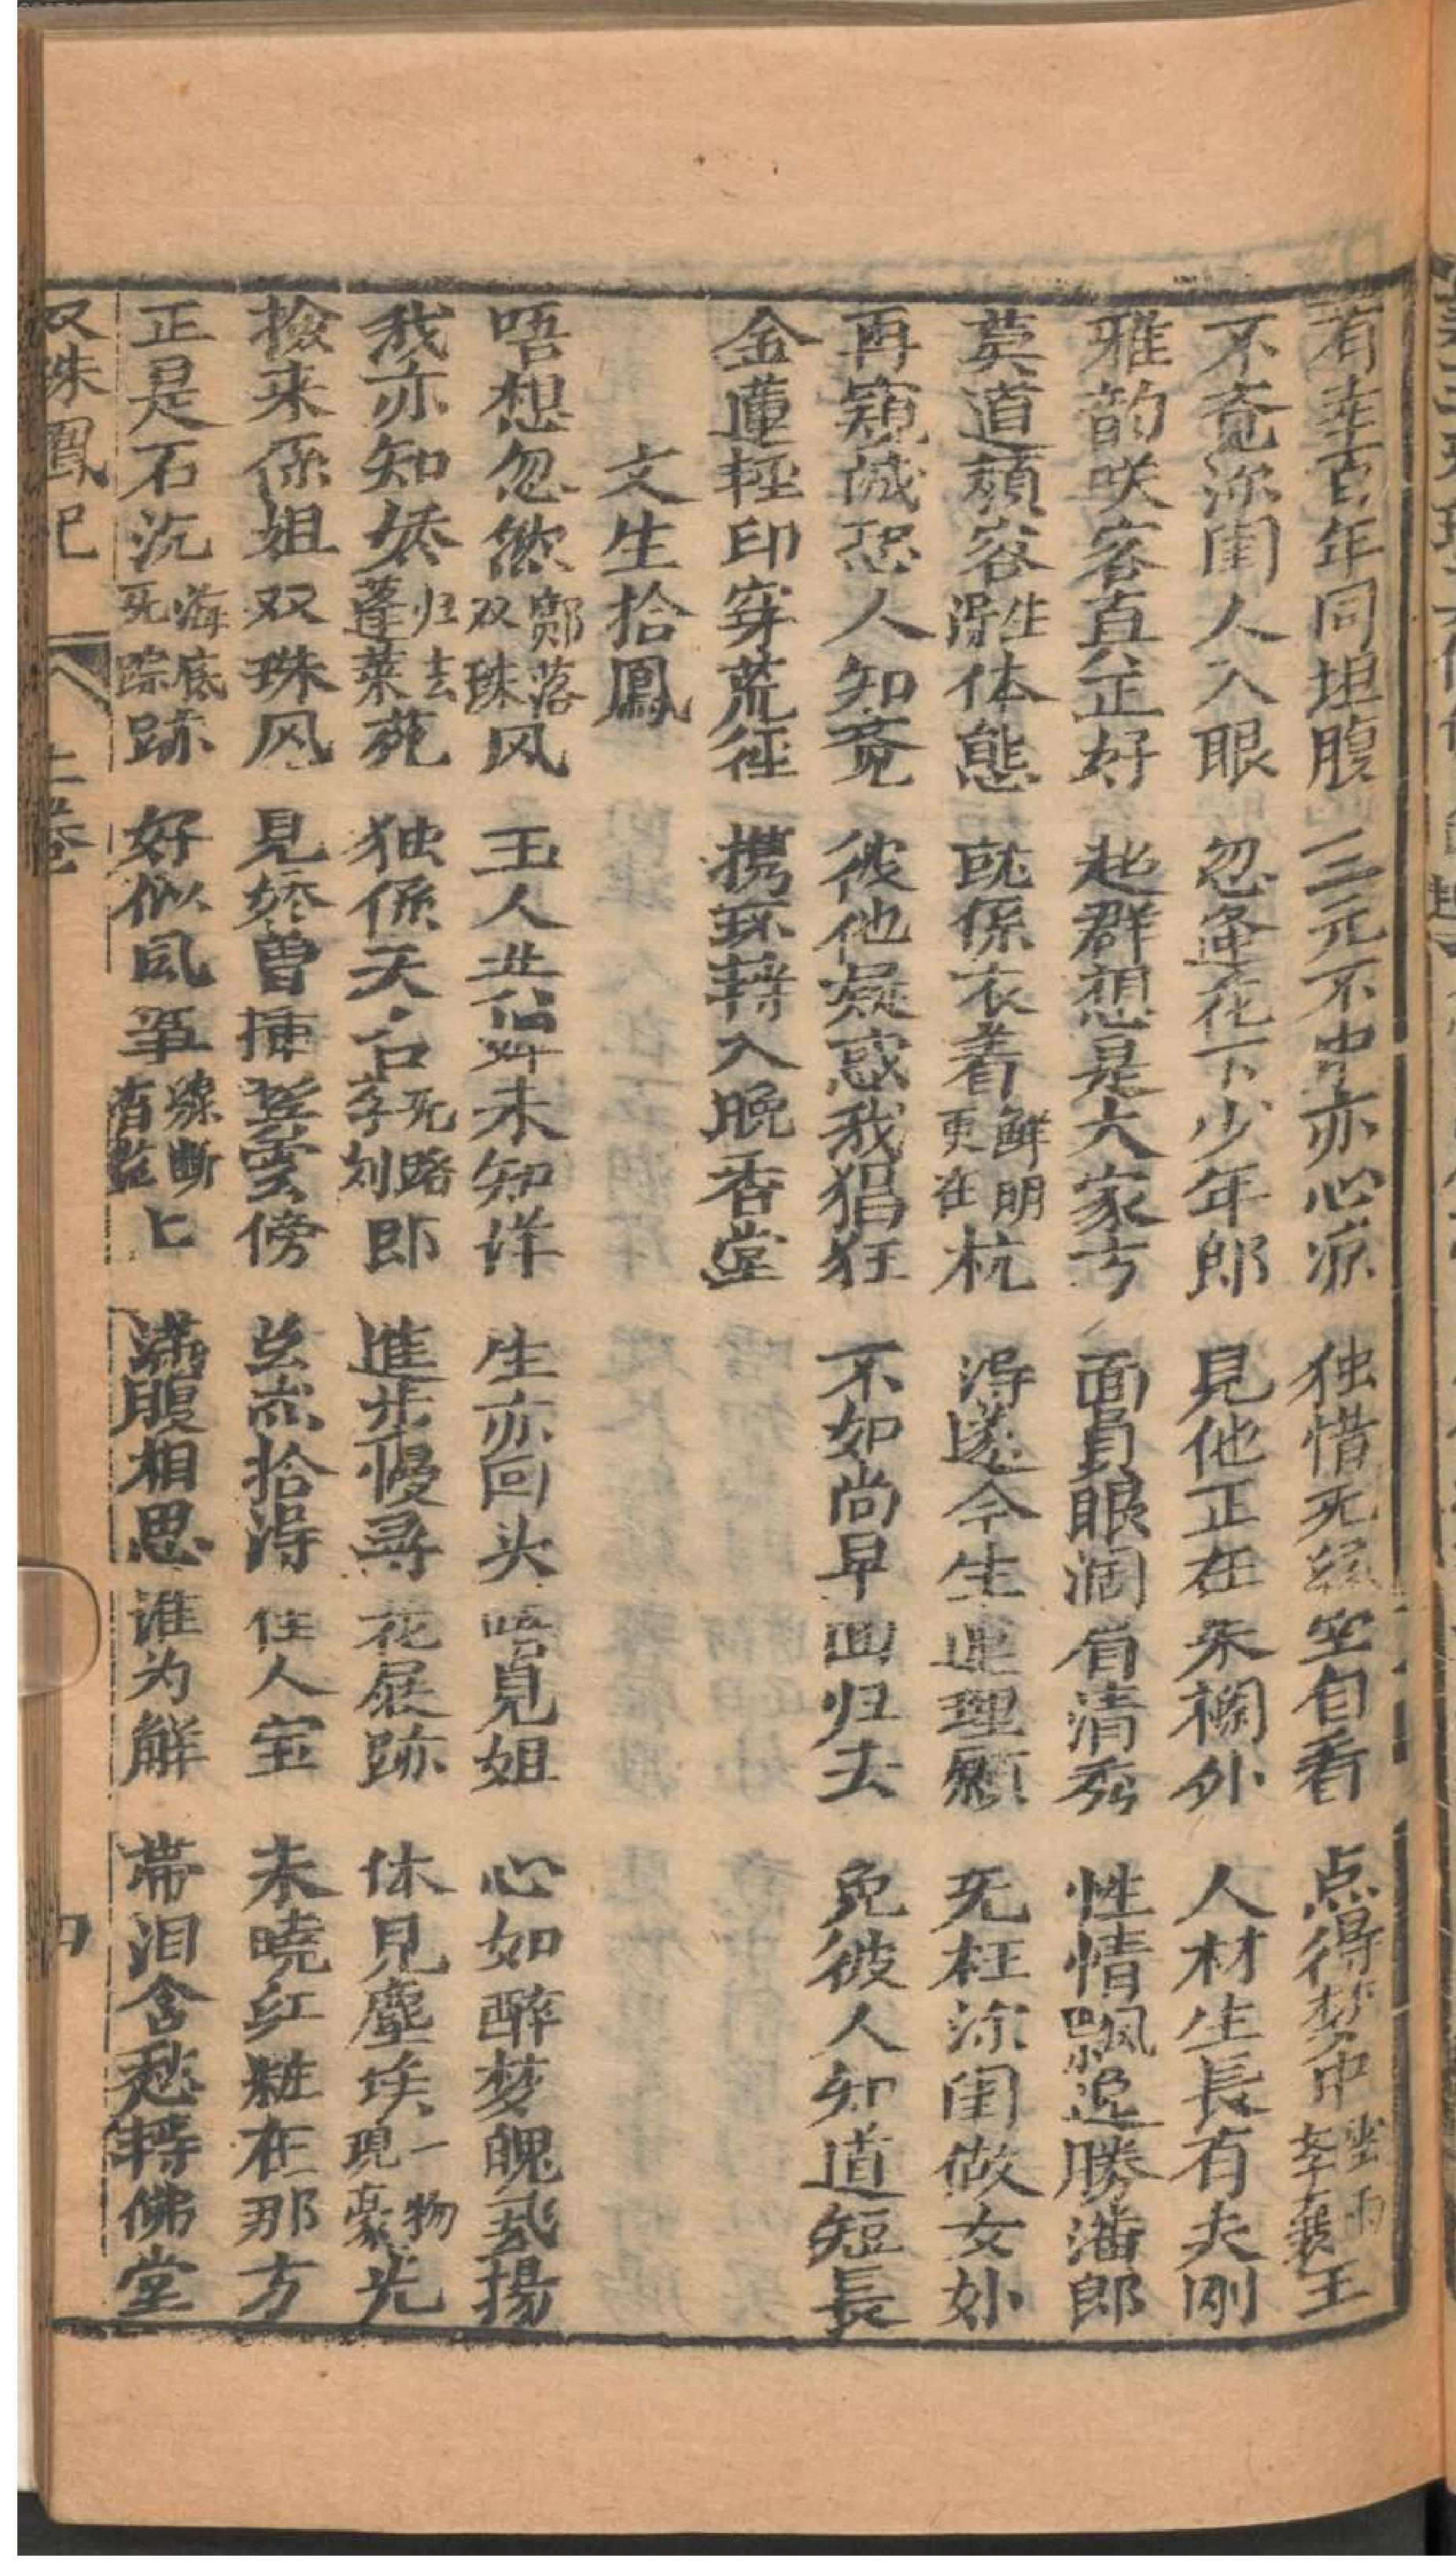 有幸百年同坦腹 三元不中亦心凉 独惜死缘空自看 点得梦中云雨李襄王
不覚深闺人入眼 忽逢花下少年郎 見他正在朱欄外 人材生長有夫刚
雅韵咲容真正好 超群想是大家方 面員眼濶眉清秀 性情飘逸勝潘郎
莫道顔容生得体態 既係衣着鮮明更在杭 得遂今生連理願 无枉深闺做女妙
再窺誠恐人知竟 彼他疑惑我猖狂 不如尚早回归去 免彼人知道短長
金蓮軽印穿荒径 携环转入晚香堂
文生拾鳳
唔想忽然鄭落双珠风 玉人共佔好未知洋 生亦回头唔見姐 心如醉梦魄飛揚
我亦知娇归去蓬莱苑 独係天台无路李刘郎 進步慢尋花展跡 休見塵埃一物現豪光
撿来係姐双珠风 見娇曾插鬂雲傍 玄亦拾得佳人宝 未曉红粧在那方
正是石沉海底死踪跡 好似风筝線断杳茫匕 满腹相思谁为解 帯泪含愁轉佛堂
双珠鳳记 上卷 四